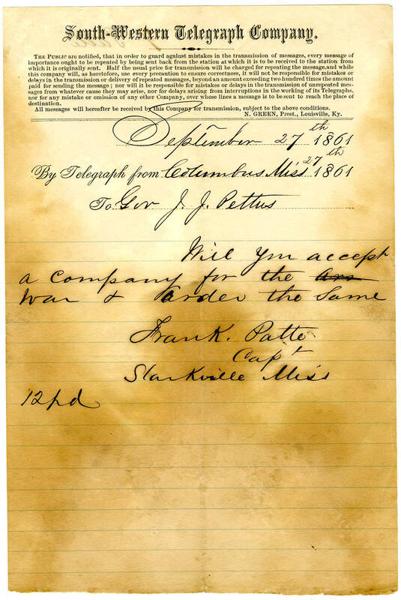 South-Western Telegraph Company.
THE PUBLIC are notified, that in order to guard against mistakes in the transmission of messages, every message of
importance ought to be repeated by being sent back from the station at which it is to be received to the station from
which it is originally sent. Half the usual price for transmission will be charged for repeating the message, and while
this company will, as herefore, use every precaution to ensure correctness, it will not be responsible for mistakes or
delays in the transmission or delivery of repeated messages, beyond an amount exceeding two hundred times the amount
paid for sending the message; nor will it be responsible for mistakes or delays in the transmission of unrepeated mes-
sages from whatever cause they may arise, nor for delays arising from interruptions in the working of its Telegraphs,
nor for any mistake or omission of any other Company, over whose lines a message is to be sent to reach the place of
destination.
All messages will hereafter be received by this Company for transmission, subject to the above conditions.
N. GREEN, Prest., Louisville, Ky.
September 27th 1861
By Telegraph from Columbus Miss 27th 1861
To Gov J. J. Pettus
Will you accept
a company for the
war & order the same
Frank. Patte
Capt
Starkville Miss
12 pd